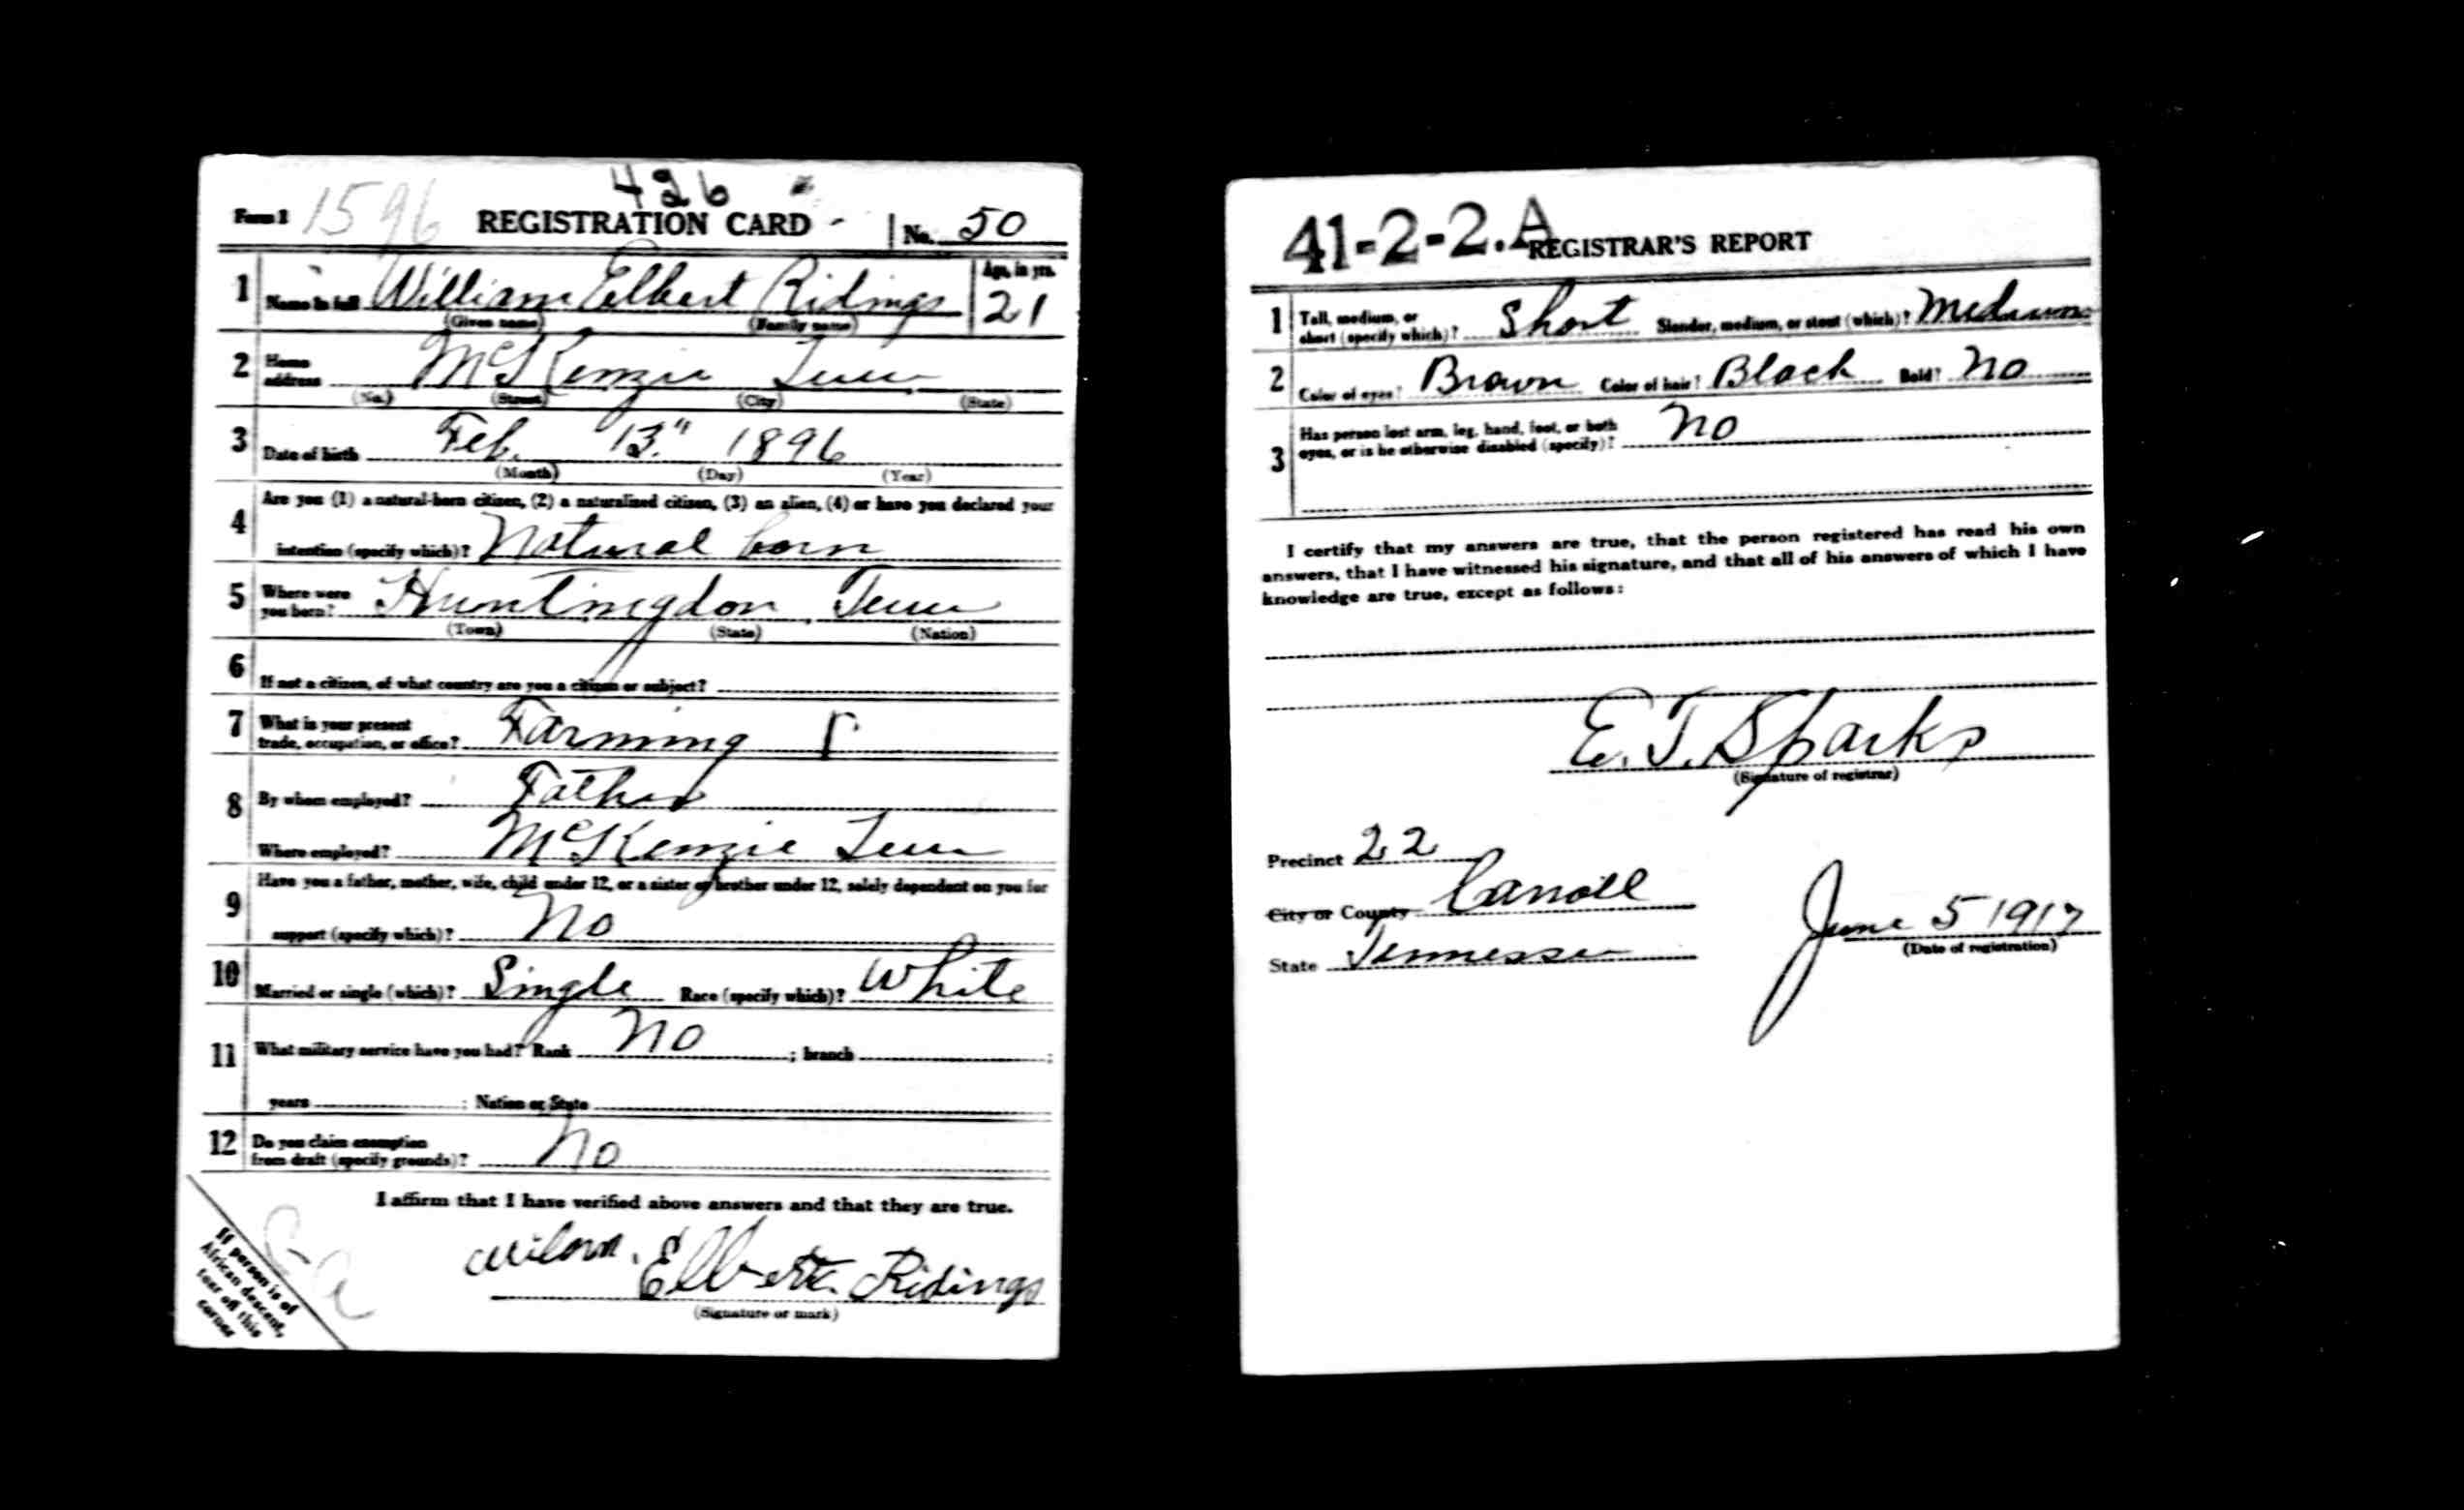 426
Form 1 1596 REGISTRATION CARD No. 50
1 Name in full William Elbert Ridings Age, in yrs. 21
(Given name) (Family name)
2 Home address McKenzie Tenn
(No.) (Street) (City) (State)
3 Date of birth Feb. 13" 1896
(Month) (Day) (Year)
4 Are you (1) a natural-born citizen, (2) a naturalized citizen, (3) an alien, (4) or have you declared your
intention (specify which)? Natural born
5 Where were you born? Huntingdon, Tenn
(Town) (State) (Nation)
6 If not a citizen, of what country are you a citizen or subject?
7 What is your present
trade, occupation, or office? Farming
8 By whom employed? Father
Where employed? McKenzie Tenn
9 Have you a father, mother, wife, child under 12, or a sister or brother under 12, solely dependent on you for
support (specify which)? No
10 Married or single (which)? Single Race (specify which)? White
11 What military service have you had? Rank No ; branch ;
years ; Nation or State
12 Do you claim exemption
from draft (specify grounds)? No
I affirm that I have verified above answers and that they are true.
Elbert Ridings
(Signature or mark)
If person is of
African descent,
tear off this
corner
41-2-2.A REGISTRAR'S REPORT
1 Tall, medium, or
short (specify which)? Short Slender, medium, or stout (which)? Medium
2 Color of eyes? Brown Color of hair? Black Bald? No
3 Has person lost arm, leg, hand, foot, or both
eyes, or is he otherwise disabled (specify)? No
I certify that my answers are true, that the person registered has read his own
answers, that I have witnessed his signature, and that all of his answers of which I have
knowledge are true, except as follows:
E. T. Sparks
(Signature of registrar)
Precinct 22
City or County Carroll
State Tennessee
June 5 1917
(Date of registration)